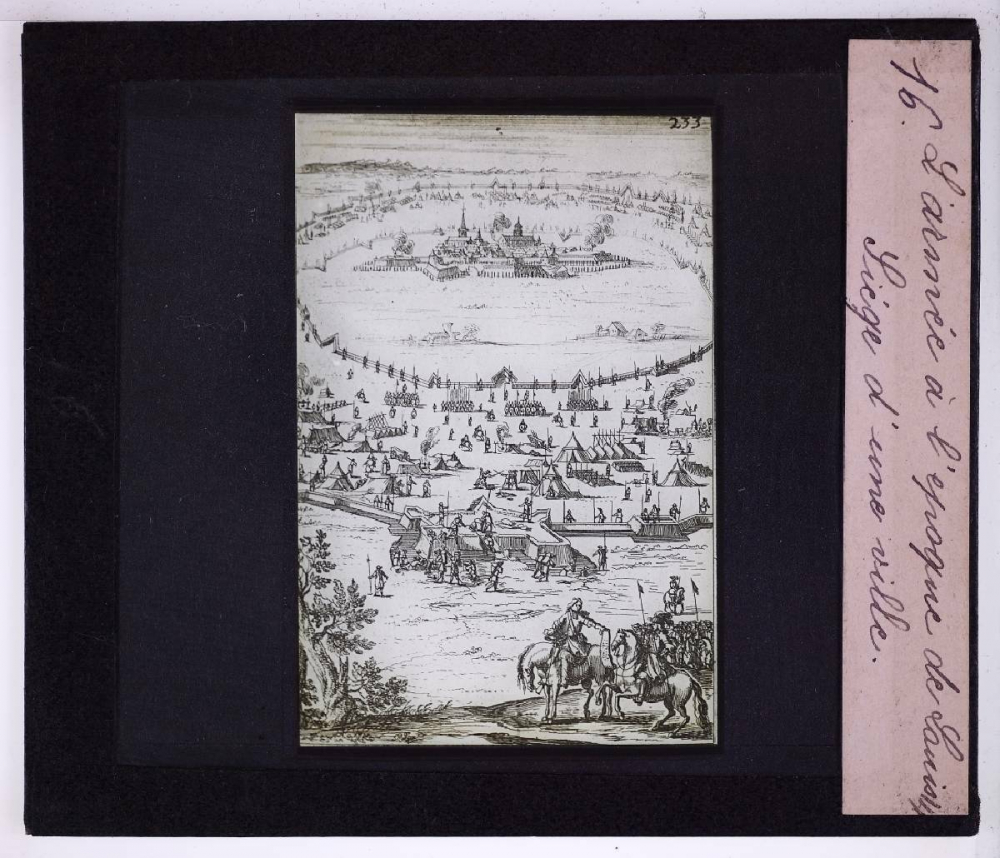 16. L'armée à l'époque de Louis 14
Siège d'une ville.
233